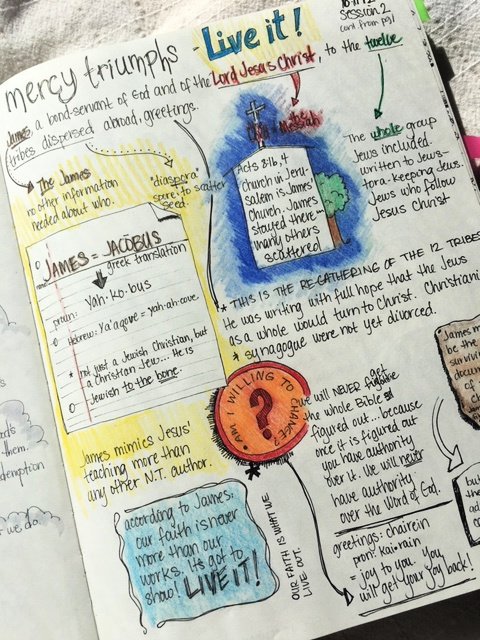 mercy triumphs - Live it!
10.11.12
Session 2
James, a bond-servant of God and of the Lord Jesus Christ, to the twelve
tribes dispersed abroad, greetings.
The James
no other information
needed about who.
"diaspora"
spore: to scatter
seed.
the
Messiah
Acts 8:1b,4
church in Jeru-
salem is James'
Church. James
stayed there...
many others
scattered
The whole group
Jews included.
written to Jews-
tora-keeping Jews.
Jews who follow
Jesus Christ
JAMES = JACOBUS
greek translation
pron: Yah·ko·bus
Hebrew: Ya'aqove = yah-ah-cove.
* not just a Jewish Christian, but
a Christian Jew... He is
Jewish to the bone.
* THIS IS THE RE-GATHERING OF THE 12 TRIBES
He was writing with full hope that the Jews
as a whole would turn to Christ. Christiani
* synagogue were not yet divorced.
James mimics Jesus'
teaching more than
any other N.T. author.
• AM I WILLING TO CHANGE?
?
we will NEVER get
the whole Bible
figured out... because
once it is figured out
you have authority
over it. We will never
have authority
over the Word of God.
James m
be the
survivin
docume
of
but
the
ad
c
according to James:
our faith is never
more than our
works. Its got to
show! LIVE IT!
OUR FAITH IS WHAT WE
LIVE OUT.
greetings: chairein
pron: kai•rain
= joy to you. You
will get your joy back!
them.
demption
we do.